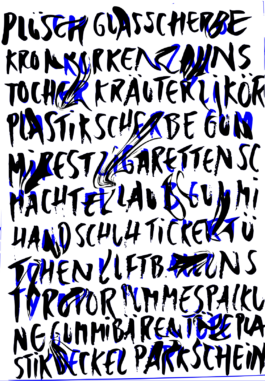 PLÜSCH GLASSCHERBE
KRONKORKEN ZAHNS
TOCHER KRÄUTERLIKÖR
PLASTIKSCHERBE GUM
MIREST ZIGARETTENSC
HACHTEL LAUB GUMMI
HANDSCHUH TICKET TÜ
TCHEN LUFTBALLONS
PLA
STIKDECKEL PARKSCHEIN